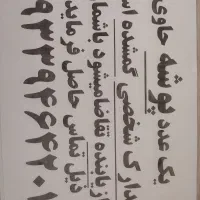 یک عدد پوشه حاوی
مدارک شخصی گمشده از
از یابنده تقاضا میشود باشما
ذیل تماس حاصل فرماید
۰۹۳۳۹۴۶۴۲۰۱